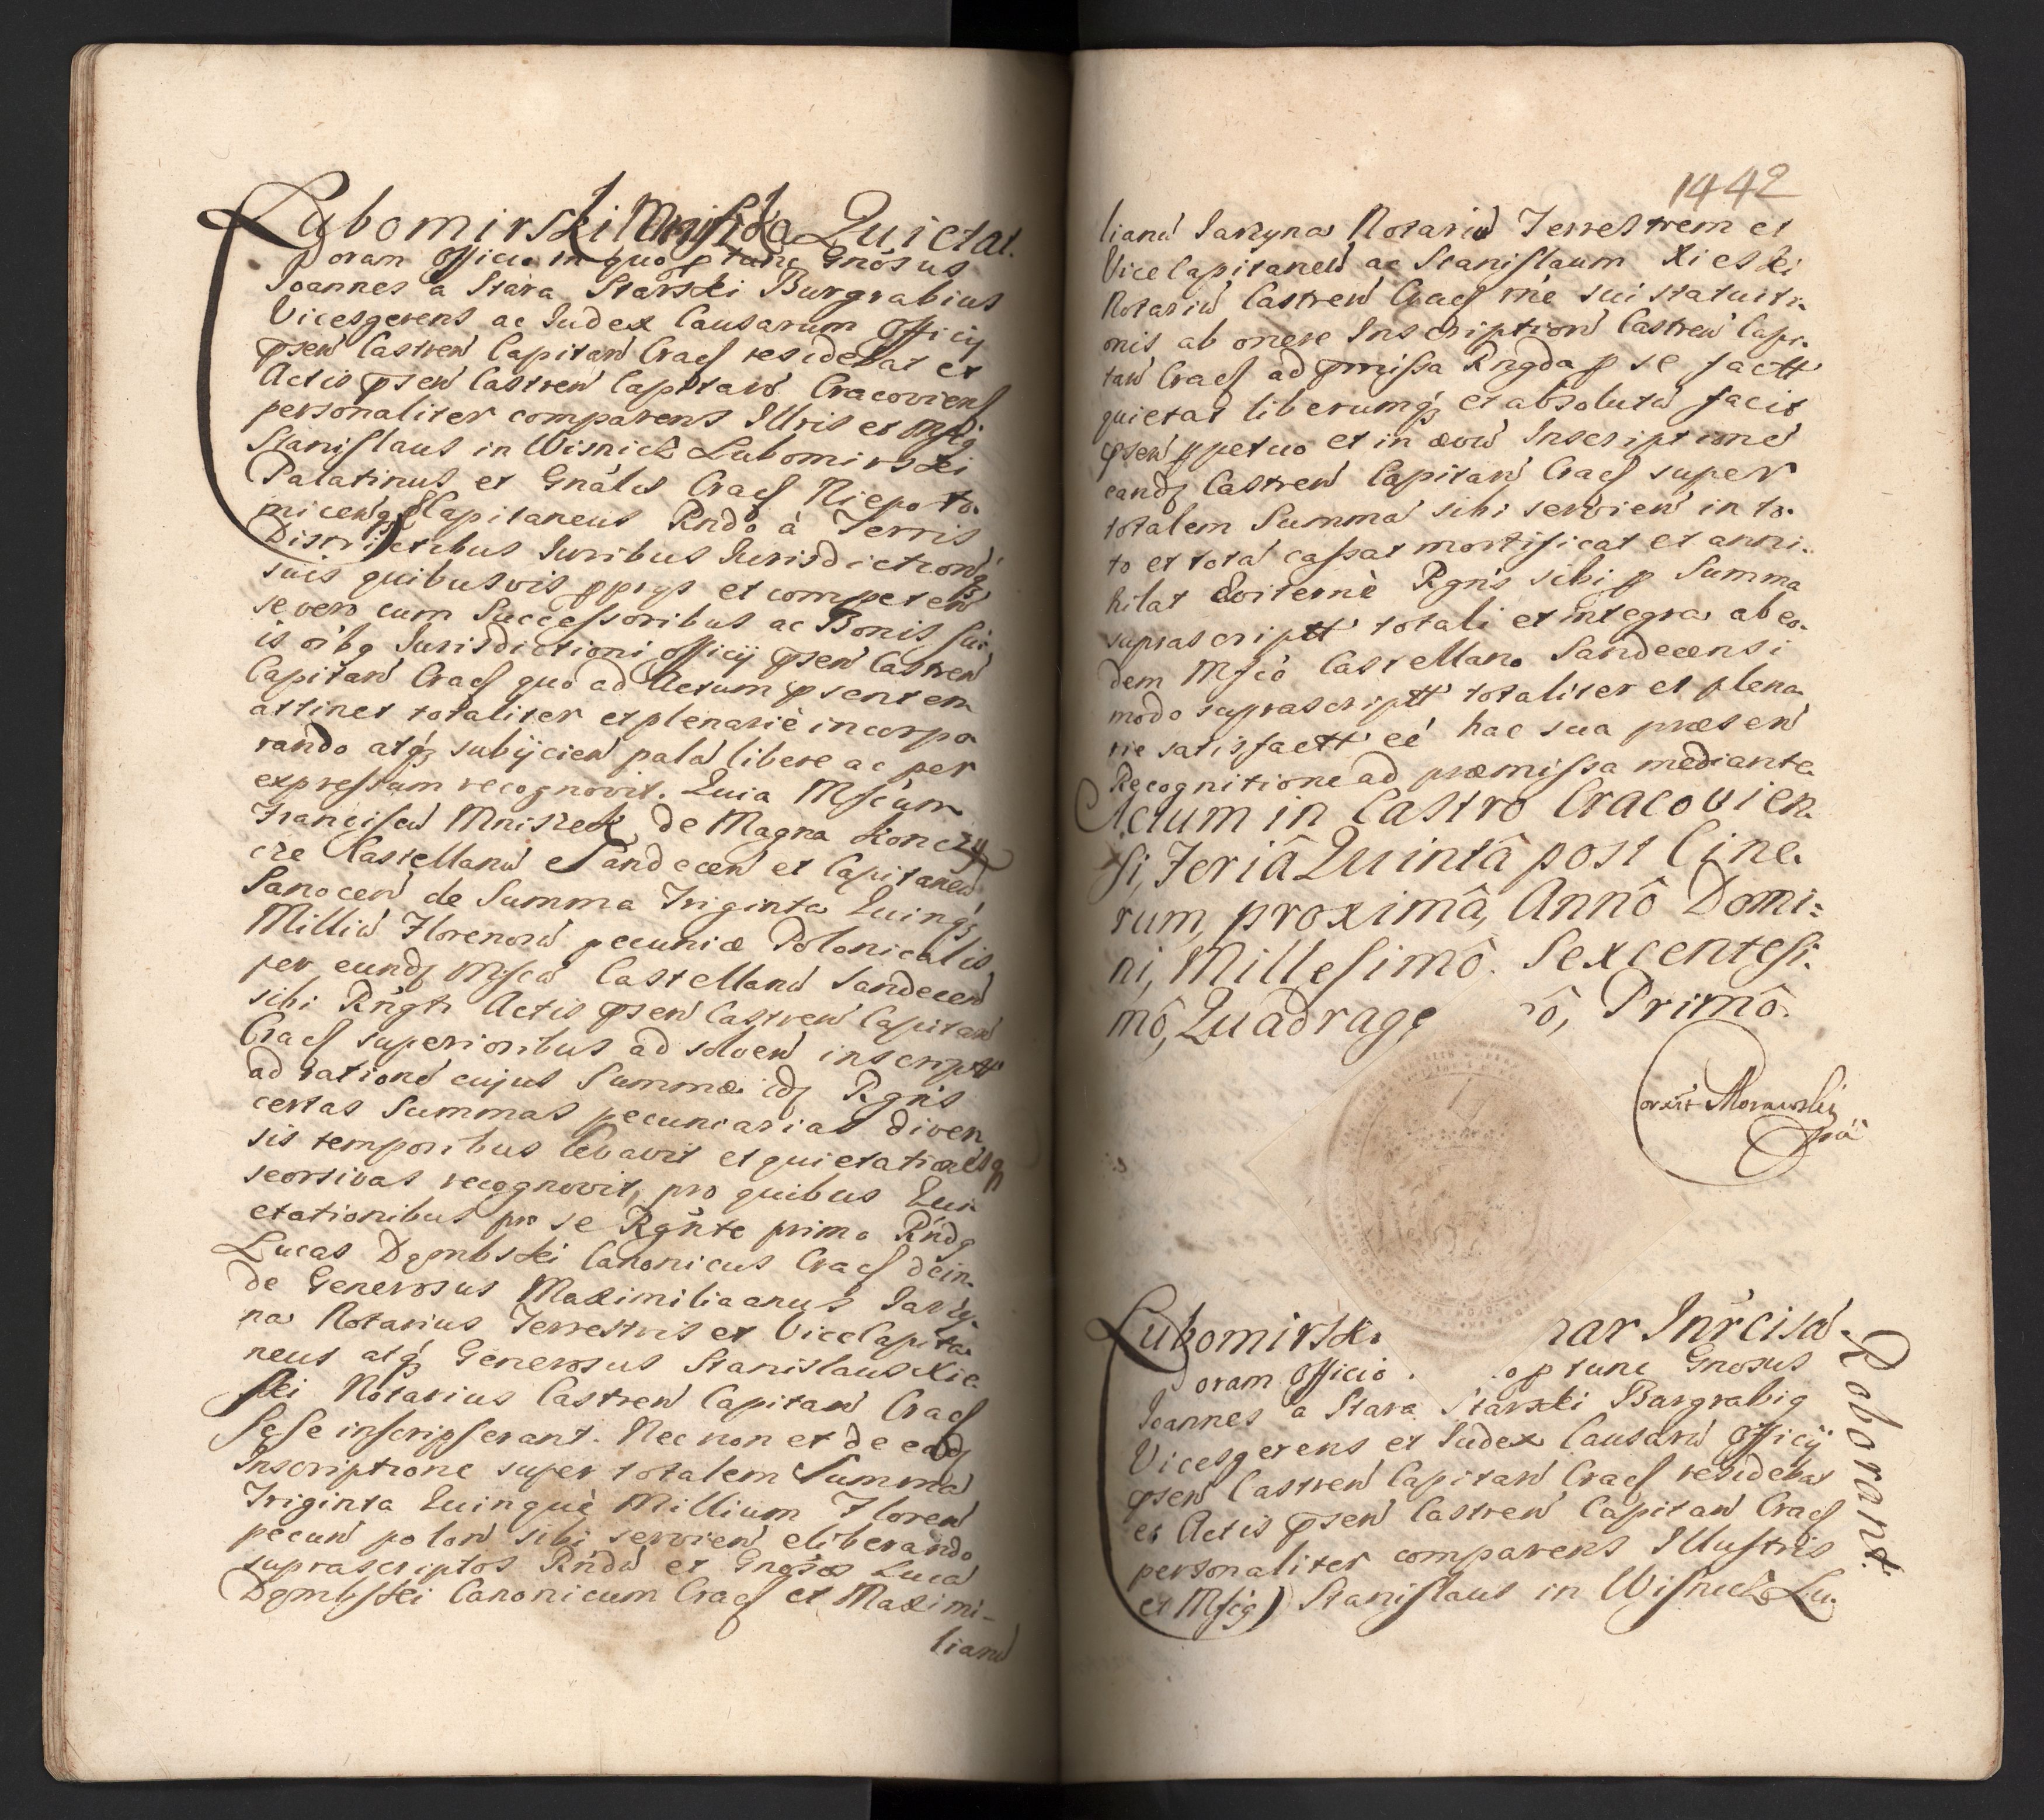 Lubomirski Mniska Quietat.
Coram Officio in quo p tunc Gnosus
Joannes a Stara Starski Burgrabius
Vicesgerens ac Judex Causarum Officij
psen Castren Capitan Cracs residebat et
Actis psen Castren Capitan Cracoviens
personaliter comparens Illris et Mfig
Stanislaus in Wisnicz Lubomirski
Palatinus et Gnális Cracs Niepoło-
micenq Capitaneus Rndo à Terris
Districtibus Iuribus Iurisdictionq
suis quibusvis ppryjs et competen
se vero cum Successoribus ac Bonis su-
is oibq Iurisdictioni officij psen Castren
Capitan Cracs quo ad Actum psentem
attinet totaliter et plenariè incorpo
rando atq subijcien palā libere ac per
expressum recognovit. Quia Mfcum
Franciscū Mniszek de Magna Koncz
cze Castellanū Sandecen et Capitaneū
Sanocen de Summa Triginta Quinq
Milliū Florenorū pecuniæ Polonicalis
per eundq Mfcū Castellanū Sandecen
sibi Rngti Actis psen Castren Capitan
Cracs superioribus ad solven inscriptt
ad rationē cujus Summæ idq Rgns
certas Summas pecuniarias diver
sis temporibus levavit et quietationesq
seorsivas recognovit, pro quibus Qui-
etationibus pro se Rgnte primo Rndq
Lucas Dąmbski Canonicus Cracs dein-
de Generosus Maximilianus Jarzy-
na Notarius Terrestris et ViceCapita-
neus atq Generosus Stanislaus Xie-
ski Notarius Castren Capitan Cracs
sese inscripserant. Nec non et de eadq
Inscriptione super totalem Summā
Triginta Quinque Millium Floren
pecun polon sibi servien eliberando
suprascriptos Rndū et Gnosos Lucā
Dąmbski Canonicum Cracs et Maximi-
lianū
1442
lianū Jarzyna Notariū Terrestrem et
ViceCapitaneū ac Stanislaum Xieski
Notariū Castren Cracs rne sui statuiti-
onis ab onere Inscription Castren Capi-
tan Cracs ad pmissa Rngda p se factt
quietat liberumq et absolutū facit
psen ppetuo et in ævū Inscriptionē
eandq Castren Capitan Cracs super
totalem Summā sibi servien in to-
to et totā cassat mortificat et anni-
hilat Eviternè Rgns sibi p Summa
suprascriptt totali et integra ab eo-
dem Mfcō Castellano Sandecensi
modo suprascriptt totaliter et plena-
rie satisfactt eē hac sua præsen
Recognitione ad præmissa mediante
Actum in Castro Cracovien-
si, Feriâ Quintâ post Cine-
rum, proximâ, Annô Domi-
ni, Millesimô. Sexcentesi-
mô, Quadrage ô, Primô.
Corexit Morawski
mp
Lubomirski nar Inrcisā
Roborant
Coram Officio o p tunc Gnosus
Joannes a Stara Starski Burgrabiq
Vicesgerens et Judex Causarū Officij
psen Castren Capitan Cracs residebat
et Actis psen Castren Capitan Cracs
personaliter comparens Illustris
et Mfig Stanislaus in Wisnicz Lu-